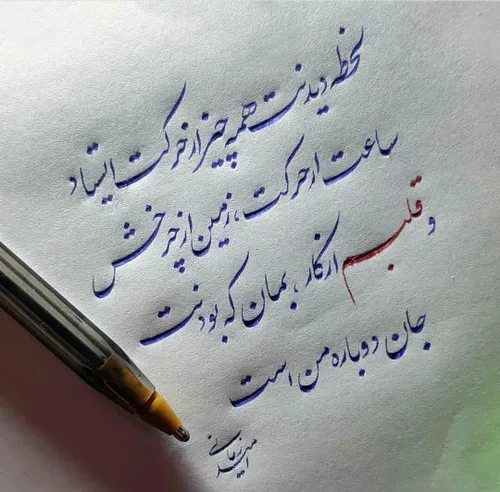 لحظه دیدنت همه چیز از حرکت ایستاد
ساعت از حرکت، زمین از چرخش
و قلبم از کار، بمان که بودنت
جان دوباره من است